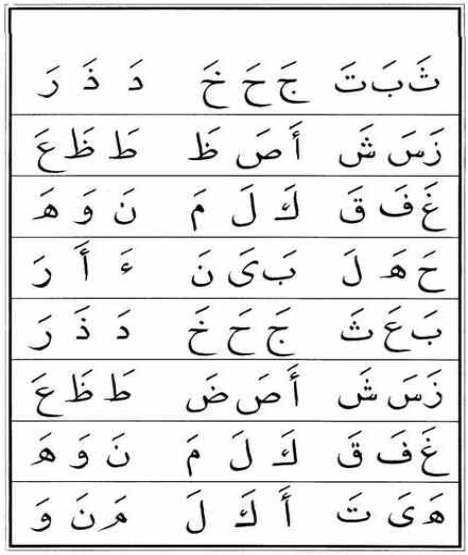 ثَ بَ تَ جَ حَ خَ دَ ذَ رَ
زَ سَ شَ أَ صَ ظَ طَ ظَ عَ
غَ فَ قَ كَ لَ مَ نَ وَ هَ
حَ هَ لَ بَ ىَ نَ ءَ أَ رَ
بَ عَ ثَ جَ حَ خَ دَ ذَ رَ
زَ سَ شَ أَ صَ ضَ طَ ظَ عَ
غَ فَ قَ كَ لَ مَ نَ وَ هَ
هَ ىَ تَ أَ كَ لَ مَ نَ وَ